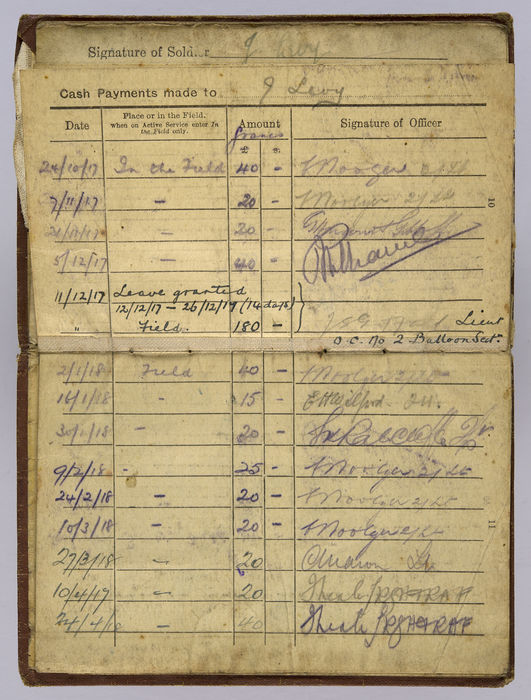 Signature of Soldier J Levy
Cash Payments made to J Levy
Date
Place or in the Field.
when on Active Service enter In
the Field only.
Amount
francs
£ s.
Signature of Officer
24/10/17 In the Field 40 - AWoolger 2/Lt
7/11/17 - 20 - AWoolger 2/Lt
21/11/17 - 20 -
5/12/17 - 40 -
11/12/17 Leave granted
12/12/17 - 26/12/17 (14 days)
" Field. 180 - Lieut
O.C. No 2 Balloon Sect.
10
2/1/18 Field 40 - AWoolger 2/Lt
16/1/18 " 15 -
30/1/18 - 20 -
9/2/18 - 25 - AWoolger 2/Lt
24/2/18 - 20 - AWoolger 2/Lt
10/3/18 - 20 - AWoolger 2/Lt
27/3/18 - 20 Lt
10/4/17 - 20 RAF
24/4/18 - 40 RAF
11